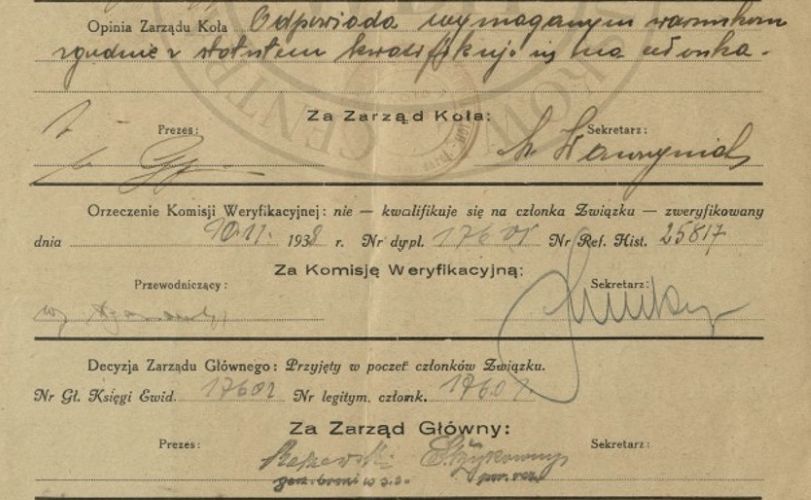 Opinia Zarządu Koła Odpowiada wymaganym warunkom
zgodnie z statutem kwalifikuje się na członka.
Za Zarząd Koła:
Prezes: Sekretarz:
Orzeczenie Komisji Weryfikacyjnej: nie — kwalifikuje się na członka Związku — zweryfikowany
dnia 10.11. 1938 r. Nr dypl. Nr Ref. Hist. 25817
Za Komisję Weryfikacyjną:
Przewodniczący: Sekretarz:
Decyzja Zarządu Głównego: Przyjęty w poczet członków Związku.
Nr Gł. Księgi Ewid. Nr legitym. członk.
Za Zarząd Główny:
Prezes: Sekretarz:
gen. broni w s.s. por. rez.